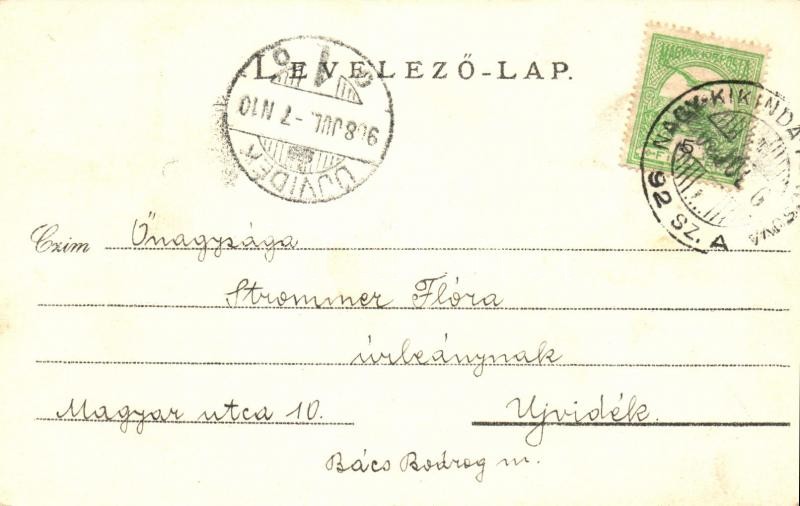 LEVELEZŐ-LAP.
ÚJVIDÉK
908 JUL. -7 N10
MAGYAR KIR. POSTA
NAGY-KIKINDA
92 SZ. A
Czim Őnagysága
Strommer Flóra
úrleánynak
Magyar utca 10. Ujvidék.
Bács Bodrog m.